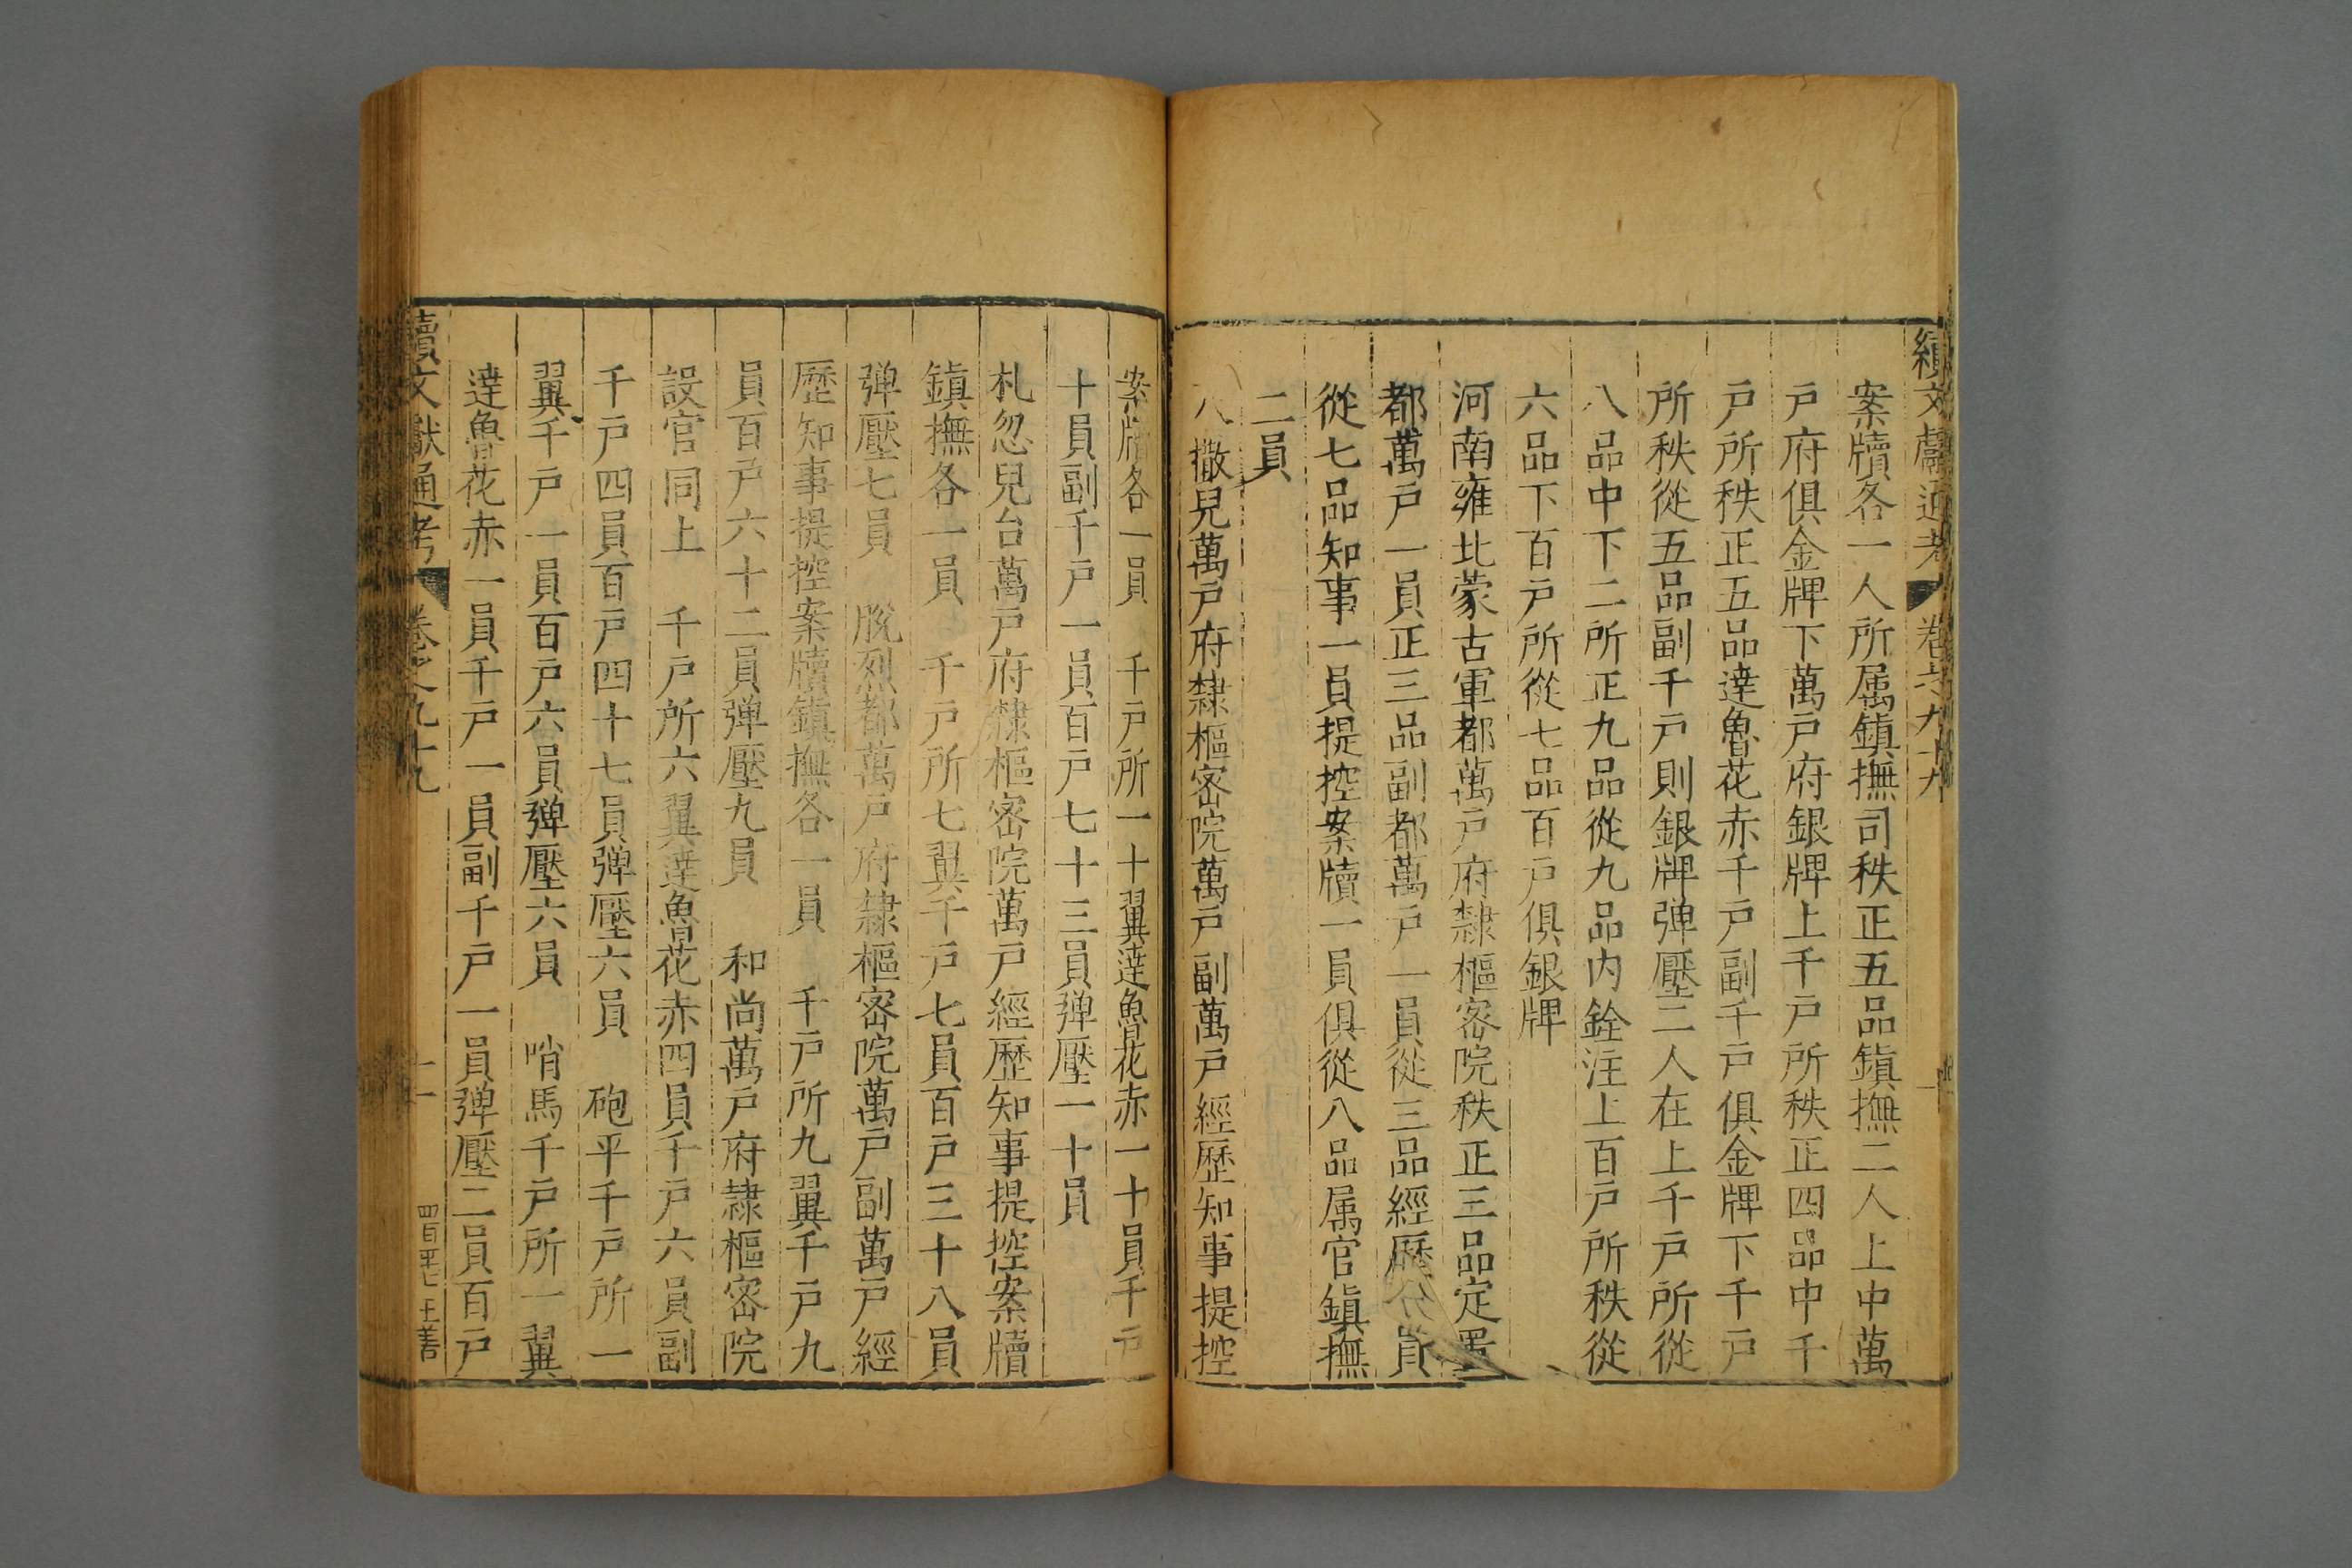 續文獻通考 卷之九十九
案牘各一人所属鎮撫司秩正五品鎮撫二人上中萬
户府俱金牌下萬户府銀牌上千户所秩正四品中千
户所秩正五品達魯花赤千户副千户俱金牌下千户
所秩從五品副千户則銀牌弹壓二人在上千户所從
八品中下二所正九品從九品内銓注上百户所秩從
六品下百户所從七品百户俱銀牌
河南雍北蒙古軍都萬户府隸樞密院秩正三品定置
都萬户一員正三品副都萬户一員從三品經歷員
從七品知事一員提控案牘一員俱從八品属官鎮撫
二員
八撒兒萬户府隸樞密院萬户副萬户經歷知事提控
案牘各一員 千户所一十翼達魯花赤一十員千户
十員副千户一員百户七十三員弹壓一十員
札忽兒台萬户府隸樞密院萬户經歷知事提控案牘
鎮撫各一員 千户所七翼千户七員百户三十八員
弹壓七員 脱烈都萬户府隸樞密院萬户副萬户經
歷知事提控案牘鎮撫各一員 千户所九翼千户九
員百户六十二員弹壓九員 和尚萬户府隸樞密院
設官同上 千户所六翼達魯花赤四員千户六員副
千户四員百户四十七員弹壓六員 砲平千户所一
翼千户一員百户六員弹壓六員 哨馬千户所一翼
達魯花赤一員千户一員副千户一員弹壓二員百户
續文獻通考 卷之九十九 十一 王善